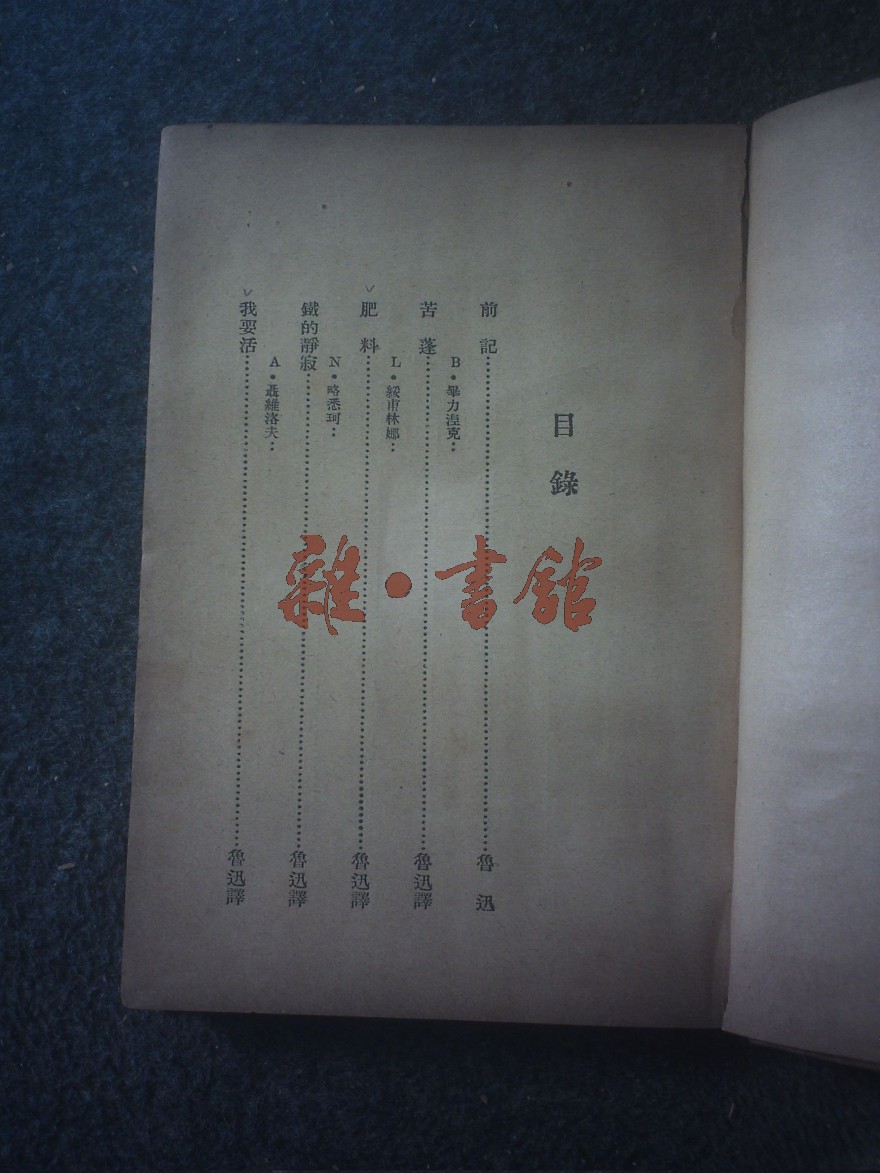 目錄
前記……魯迅
B・畢力涅克：
苦蓬……魯迅譯
L・綏甫林娜：
肥料……魯迅譯
N・略悉珂：
鐵的靜寂……魯迅譯
A・聶維洛夫：
我要活……魯迅譯
雜・書館